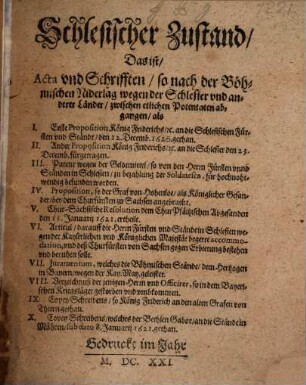 Schlesischer Zustand/
Das ist/
Acta vnd Schrifften / so nach der Böh-
mischen Niderlag wegen der Schlesier vnd an-
derer Länder / zwischen etlichen Potentaten ab-
gangen / als
I. Erste Proposition König Friderichs/ꝛc. an die Schlesischen Für-
sten vnd Stände / den 12. Decemb. 1620. gethan.
II. Ander Proposition König Friderichs/ꝛc. an die Schlesier den 23.
Decemb. fürtragen.
III. Patent wegen der Geldmittel / so von den Herrn Fürsten vnd
Ständen in Schlesien / zu bezahlung der Soldatesca, für hochnoht-
wendig befunden worden.
IV. Proposition, so der Graf von Hohenloe / als Königlicher Gesand-
ter bey dem Churfürsten zu Sachsen angebracht.
V. Chur-Sächsische Resolution dem Chur Pfältzischen Abgesandten
den 11. Januarij 1621. ertheilt.
VI. Articul / darauff die Herrn Fürsten vnd Stände in Schlesien we-
gen der Käyserlichen vnd Königlichen Majestät begerte accommo-
dation, vnd deß Churfürsten von Sachsen gegen Erbietung bestehen
vnd beruhen solle.
VII. Juramentum, welches die Böhmischen Stände / dem Hertzogen
in Bayern / wegen der Kay. May. geleistet.
VIII. Verzeichnuß der jenigen Herrn vnd Officirer, so in dem Bayeri-
schen Kriegsläger gestorben vnd vmbkommen.
IX. Copey Schreibens / so König Friderich an den alten Grafen von
Thurn gethan.
X. Copey Schreibens, welches der Bethlen Gabor / an die Stände in
Mähren / sub dato 8. Januarij 1621. gethan.
Gedruckt im Jahr
M. DC. XXI